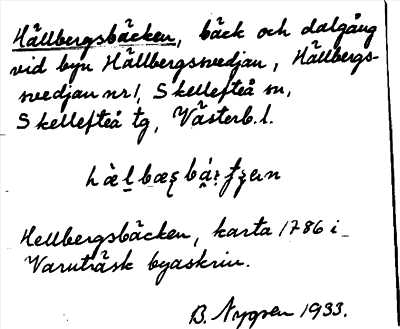 Hällbergsbäcken, bäck och dalgång
vid byn Hällbergssvedjan, Hällbergs-
svedjan nr 1, Skellefteå sn,
Skellefteå tg, Västerb. l.
Hellbergsbäcken, karta 1786 i
Varuträsk byaskrin.
B. Nygren 1933.